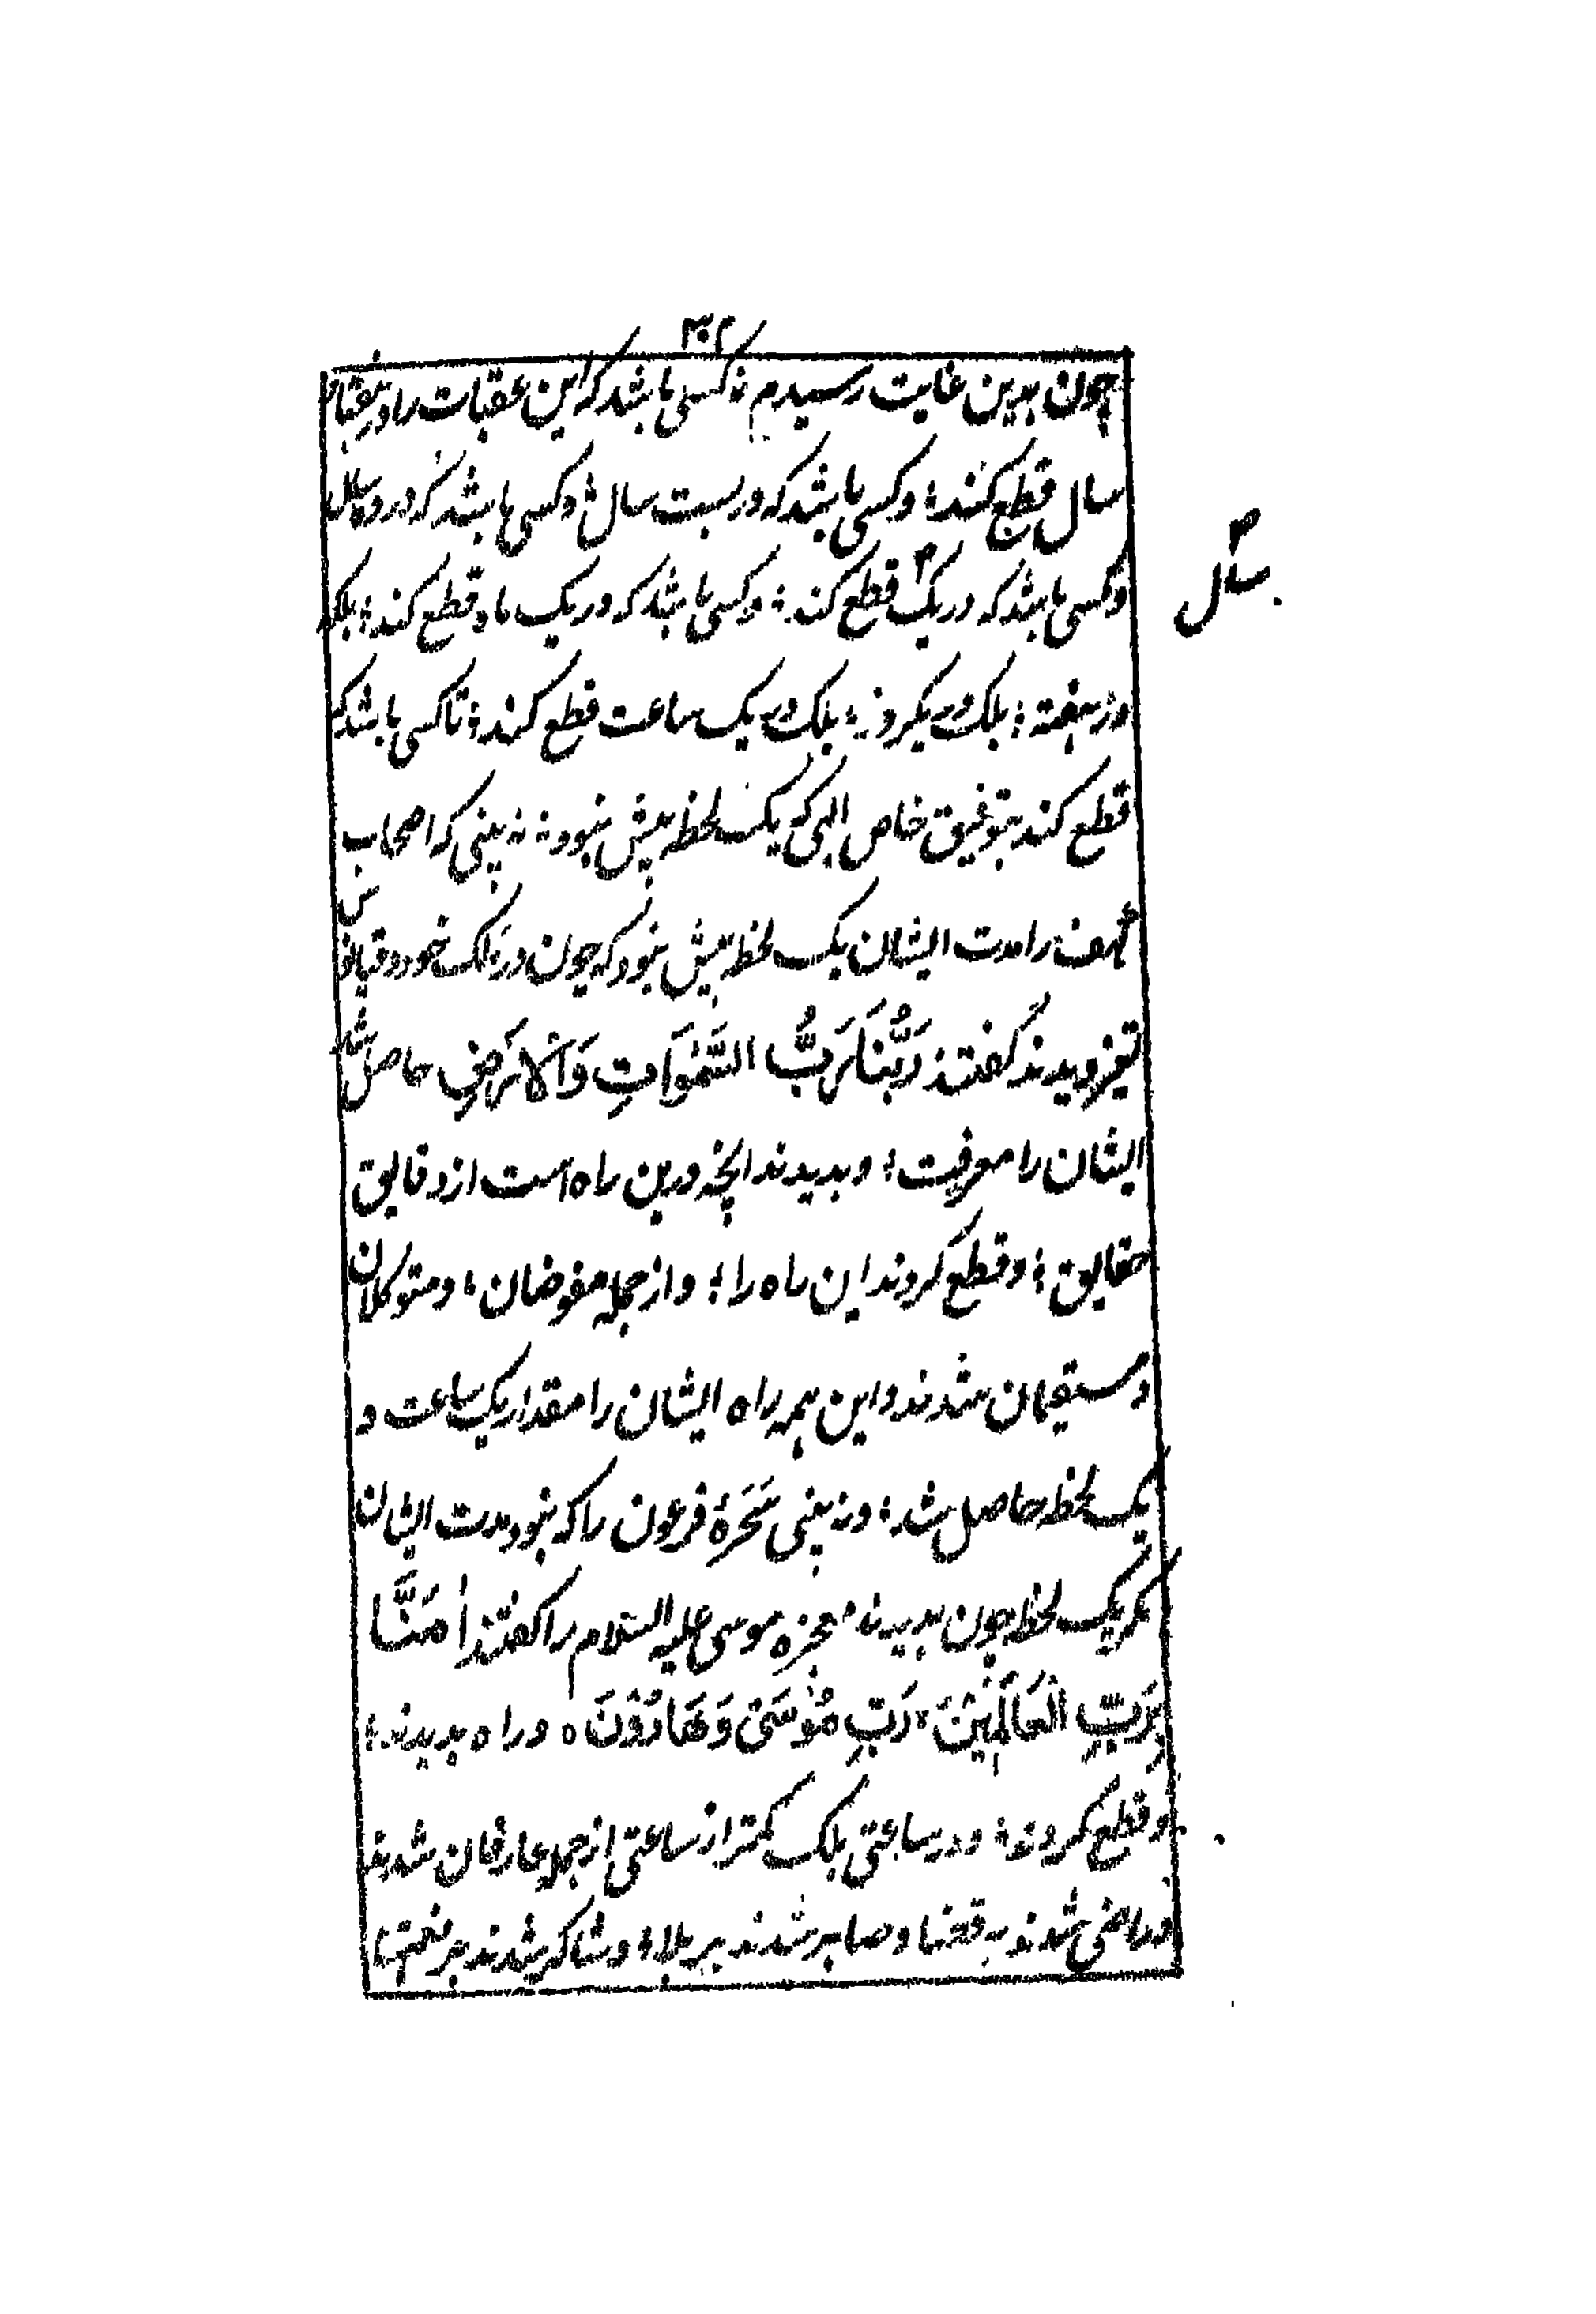 ۳۰۲
چون بدین غایت رسیدم تا کسی باشد که این عقبات را در هفتاد
سال قطع کند؛ و کسی باشد که در بیست سال؛ و کسی باشد که در ده سال
و کسی باشد که در یک ۳ قطع کند؛ و کسی باشد که در یک ماه قطع کند؛ بلکه
۳ سال
در هفته؛ بلکه در یکروز؛ بلکه در یک ساعت قطع کند؛ تا کسی باشد که
قطع کند بتوفیق خاص الهی که یک لحظه بیش نبود نه بینی که اصحاب
کهف را مدت ایشان یک لحظه بیش نبود که چون در ملک خود دقیانوس
تغیر دیدند گفتند رَبُّنَا رَبُّ السَّمٰوَاتِ وَالْاَرْضِ حاصل شد
ایشان را معرفت؛ و بدیدند آنچه درین راه است از دقایق
حقایق؛ و قطع کردند این راه را؛ و از جمله مفوضان؛ و متوکلان
و مستقیمان شدند و این همه راه ایشان را مقدار یک ساعت و
یک لحظه حاصل شد؛ و نه بینی سَحَرَۀ فرعون را که نبود مدت ایشان
مگر یک لحظه چون بدیدند معجزه موسی علیه السلام را گفتند اٰمَنَّا
بِرَبِّ الْعَالَمِیْنَ؛ رَبِّ مُوْسٰی وَهَارُوْنَ ہ و راه بدیدند؛
و قطع کردند؛ و در ساعتی بلکه کمتر از ساعتی از جمله عارفان شدند
و راضی شدند به قضا و صابر شدند بر بلا؛ و شاکر شدند بر نعمتها